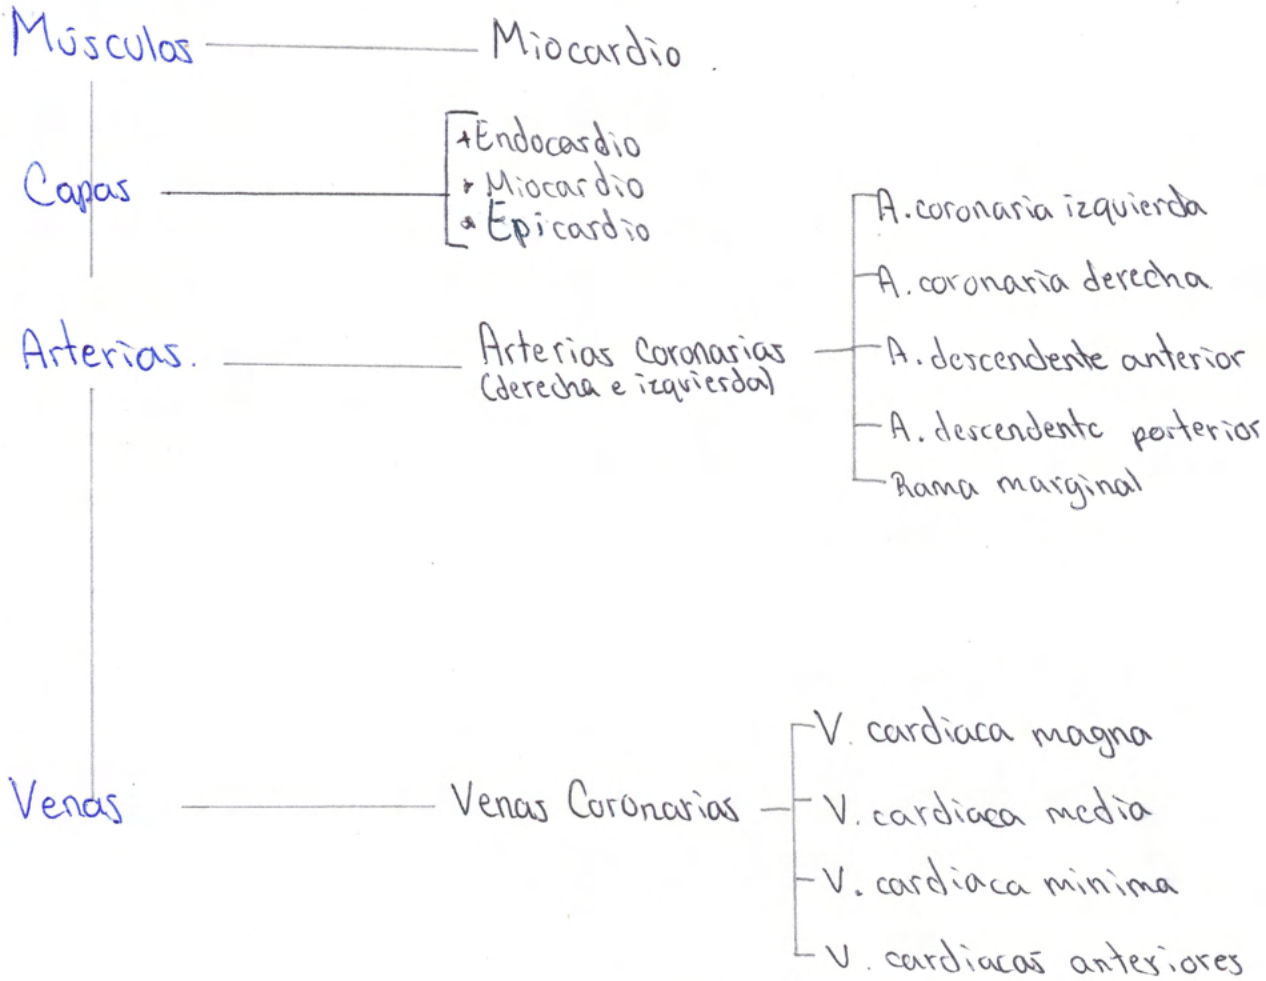 Músculos
Miocardio.
Capas
* Endocardio
* Miocardio
* Epicardio
Arterias.
Arterias Coronarias
(derecha e izquierda)
A. coronaria izquierda
A. coronaria derecha.
A. descendente anterior
A. descendente posterior
Rama marginal
Venas
Venas Coronarias
V. cardiaca magna
V. cardiaca media
V. cardiaca minima
V. cardiacas anteriores